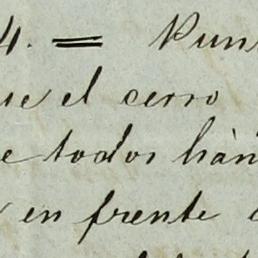 4. = Pun
ue el cerro
e todos hàn
en frente